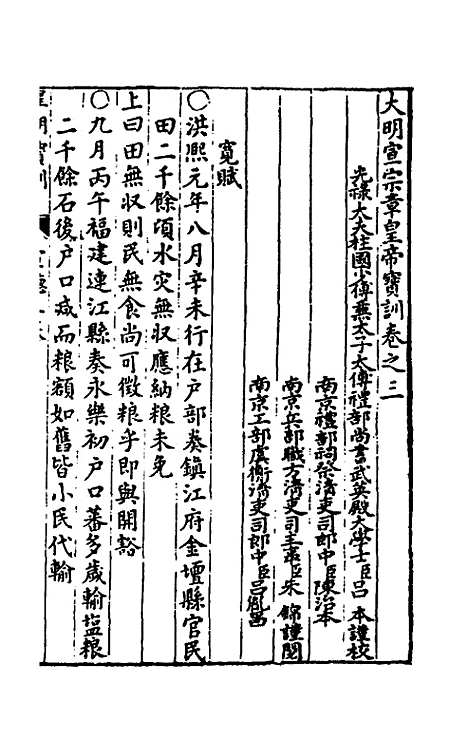 大明宣宗章皇帝寶訓卷之三
光祿大夫柱國少傅兼太子太傅禮部尚書武英殿大學士臣呂 本謹校
南京禮部祠祭清吏司郎中臣陳治本
南京兵部職方清吏司主事臣朱 錦謹閱
南京工部虞衡清吏司郎中臣呂胤昌
寬賦
○洪熙元年八月辛未行在戶部奏鎮江府金壇縣官民
田二千餘頃水灾無収應納粮未免
上曰田無収則民無食尚可徵粮乎即與開豁
○九月丙午福建連江縣奏永樂初戶口蕃多歲輸塩粮
二千餘石後戶口减而粮額如舊皆小民代輸
皇明寶訓